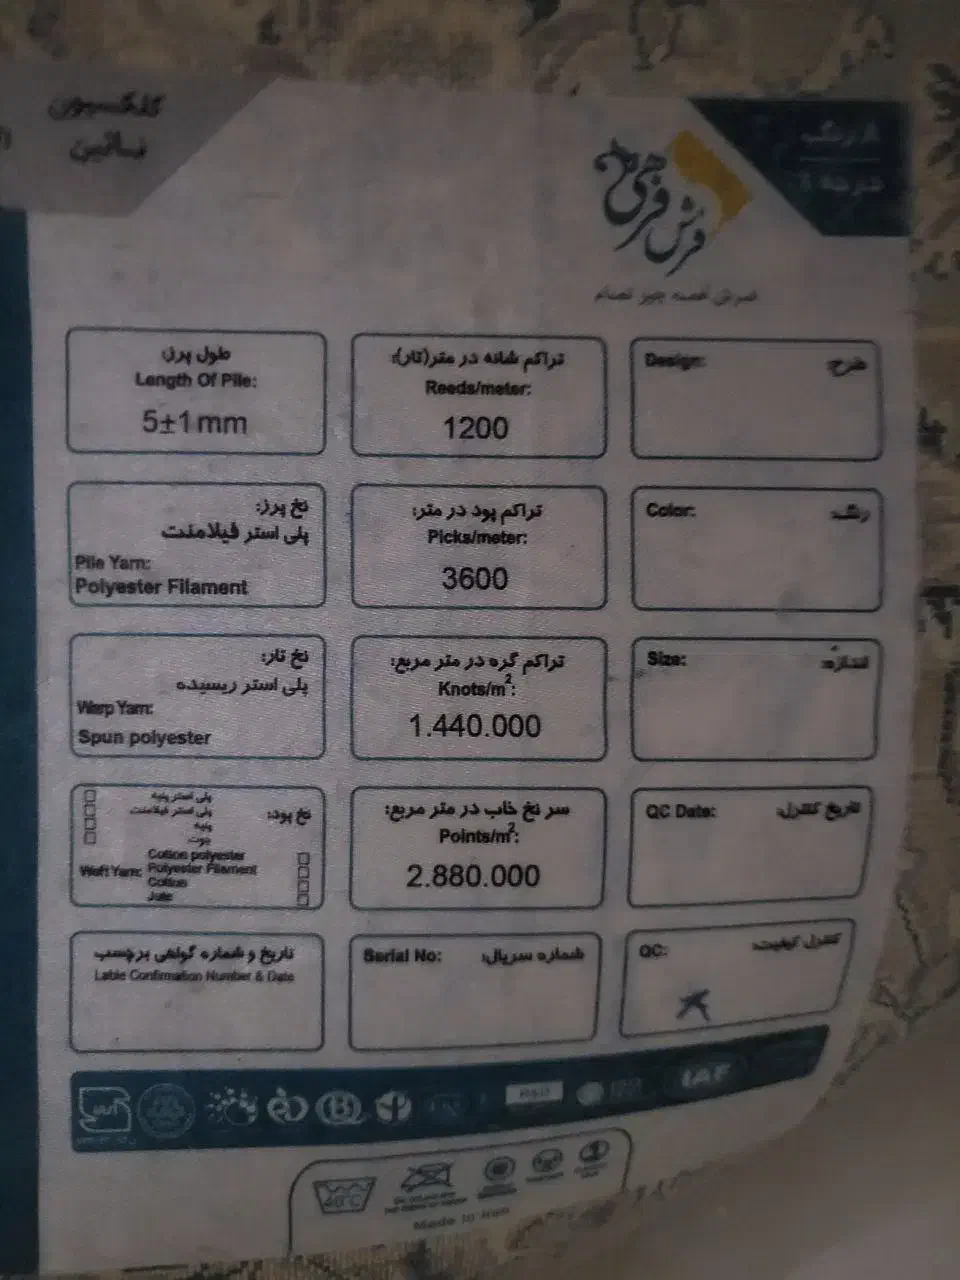 کلکسیون
نائین
۸ رنگ
درجه 1
فرش فرهی
طول پرز:
Length Of Pile:
5±1 mm
تراکم شانه در متر(تار):
Reeds/meter:
1200
Design:
طرح:
نخ پرز:
پلی استر فیلامنت
Pile Yarn:
Polyester Filament
تراکم پود در متر:
Picks/meter:
3600
Color:
رنگ:
نخ تار:
پلی استر ریسیده
Warp Yarn:
Spun polyester
تراکم گره در متر مربع:
Knots/m²:
1.440.000
Size:
اندازه:
نخ پود:
پلی استر پنبه
پلی استر فیلامنت
پنبه
جوت
Weft Yarn:
Cotton polyester
Polyester Filament
Cotton
Jute
سر نخ خاب در متر مربع:
Points/m²:
2.880.000
QC Date:
تاریخ کنترل:
تاریخ و شماره گواهی برچسب
Lable Confirmation Number & Date
Serial No:
شماره سریال:
QC:
کنترل کیفیت:
R&D
IAF
40°C
Made in Iran